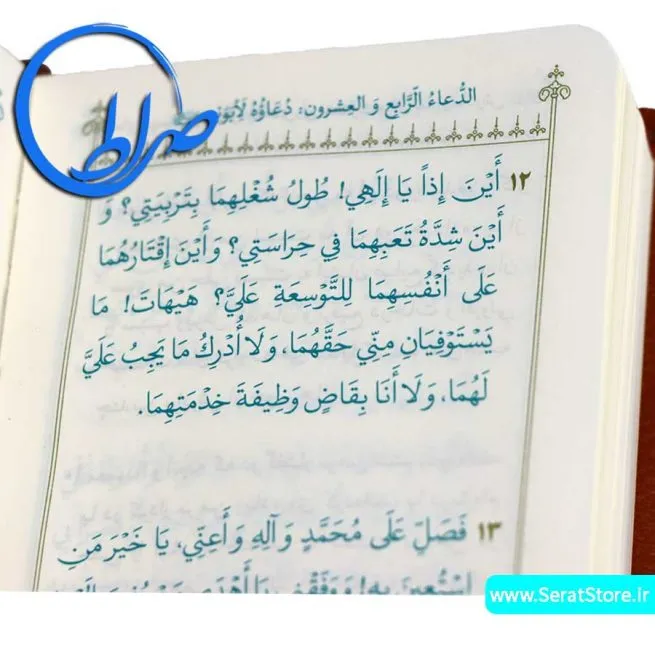 صراط
الدُّعاءُ الرَّابِعِ وَ العِشرون: دُعاؤُهُ لِأَبَوَيْهِ
۱۲ أَيْنَ إِذاً يَا إِلَهِي! طُولُ شُغْلِهِمَا بِتَرْبِيَتِي؟ وَ
أَيْنَ شِدَّةُ تَعَبِهِمَا فِي حِرَاسَتِي؟ وَ أَيْنَ إِقْتَارُهُمَا
عَلَى أَنْفُسِهِمَا لِلتَّوْسِعَةِ عَلَيَّ؟ هَيْهَاتَ! مَا
يَسْتَوْفِيَانِ مِنِّي حَقَّهُمَا، وَ لَا أُدْرِكُ مَا يَجِبُ عَلَيَّ
لَهُمَا، وَ لَا أَنَا بِقَاضٍ وَظِيفَةَ خِدْمَتِهِمَا.
۱۳ فَصَلِّ عَلَى مُحَمَّدٍ وَ آلِهِ وَ أَعِنِّي، يَا خَيْرَ مَنِ
اسْتُعِينَ بِهِ! وَ وَفِّقْنِي يَا أَهْدَى
www.SeratStore.ir